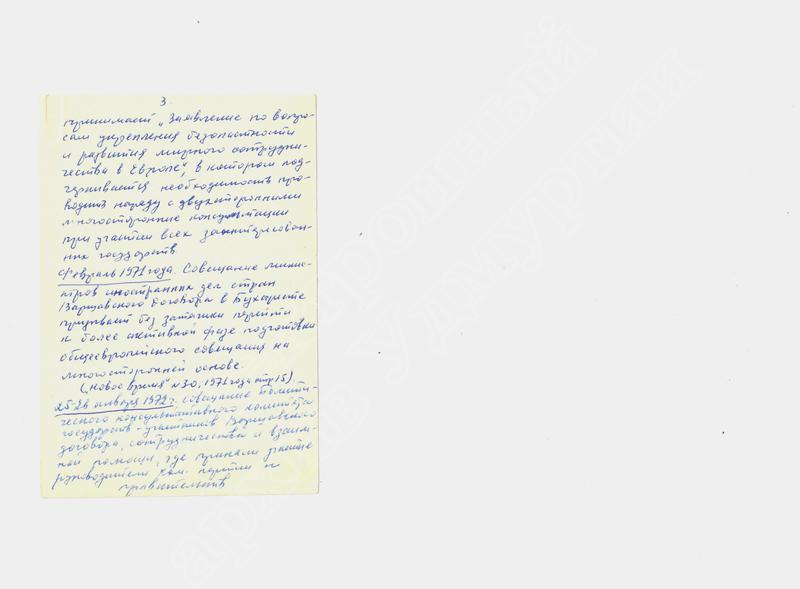 3.
принимает „Заявление по вопро-
сам укрепления безопасности
и развития мирного сотрудни-
чества в Европе“, в котором под-
черкивается необходимость про-
водить наряду с двухсторонними
многосторонние консультации
при участии всех заинтересован-
ных государств.
Февраль 1971 года. Совещание минис-
тров иностранных дел стран
Варшавского договора в Бухаресте
призывает без затяжки перейти
к более активной фазе подготовки
общеевропейского совещания на
многосторонней основе.
(„Новое время“ №30, 1971 года стр 15).
25-26 января 1972 г. совещание Полити-
ческого консультативного комитета
государств-участников Варшавского
договора, сотрудничества и взаим-
ной помощи, где приняли участие
руководители ком. партии и
правительств